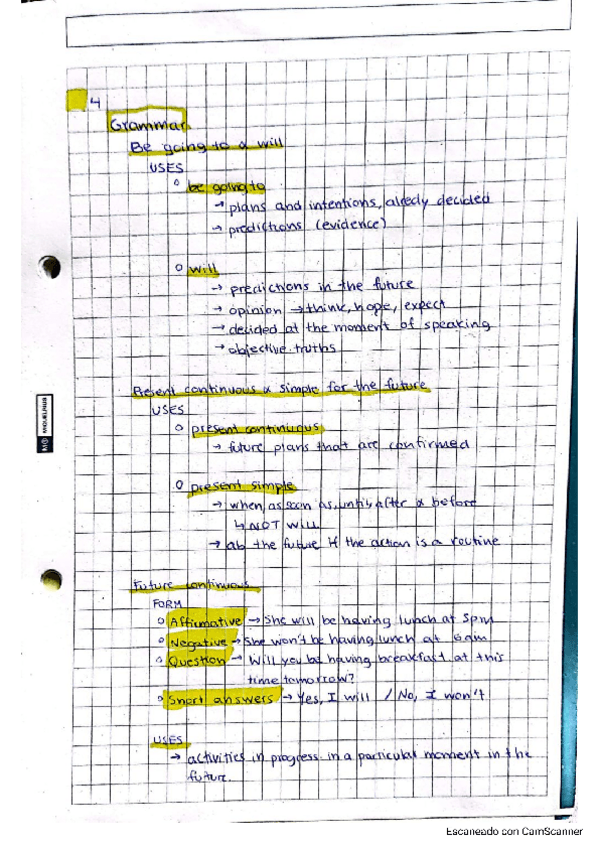 4
Grammar
Be going to & will
USES
be going to
→ plans and intentions, alredy decided
→ predictions (evidence)
will
→ predictions in the future
→ opinion → think, hope, expect
→ decided at the moment of speaking
→ objective truths
Present continuous & simple for the future
USES
present continuous
→ future plans that are confirmed
present simple
→ when, as soon as, until, after & before
↳ NOT WILL
→ ab the future if the action is a routine
Future continuous
FORM
Affirmative → She will be having lunch at 5pm
Negative → She won't be having lunch at 6am
Question → Will you be having breakfast at this
time tomorrow?
Short answers → Yes, I will / No, I won't
USES
→ activities in progress in a particular moment in the
future.
MIQUELRIUS
Escaneado con CamScanner